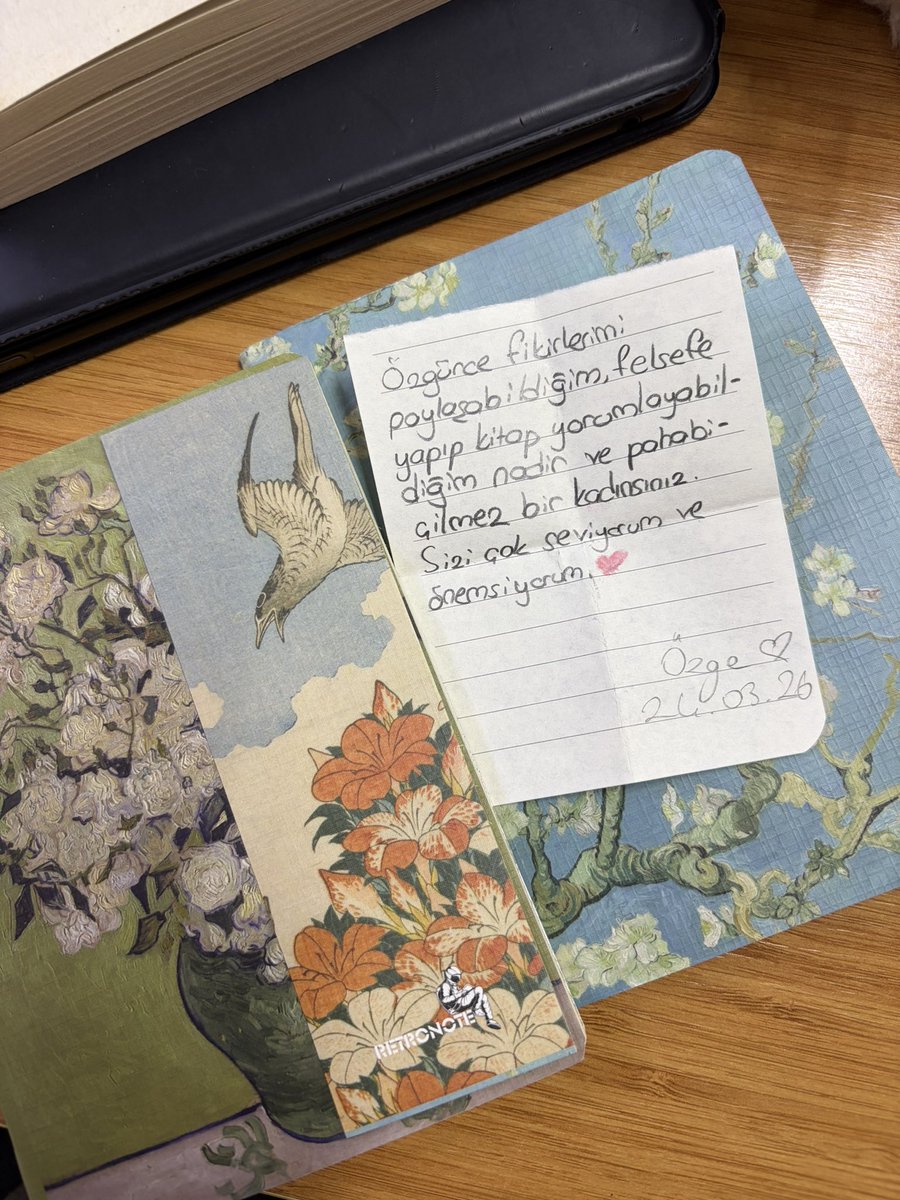 Özgürce fikirlerimi
paylaşabildiğim, felsefe
yapıp kitap yorumlayabil-
diğim nadir ve pahabi-
çilmez bir kadınsınız.
Sizi çok seviyorum ve
önemsiyorum.
Özge
24.03.26
RETRONOTE